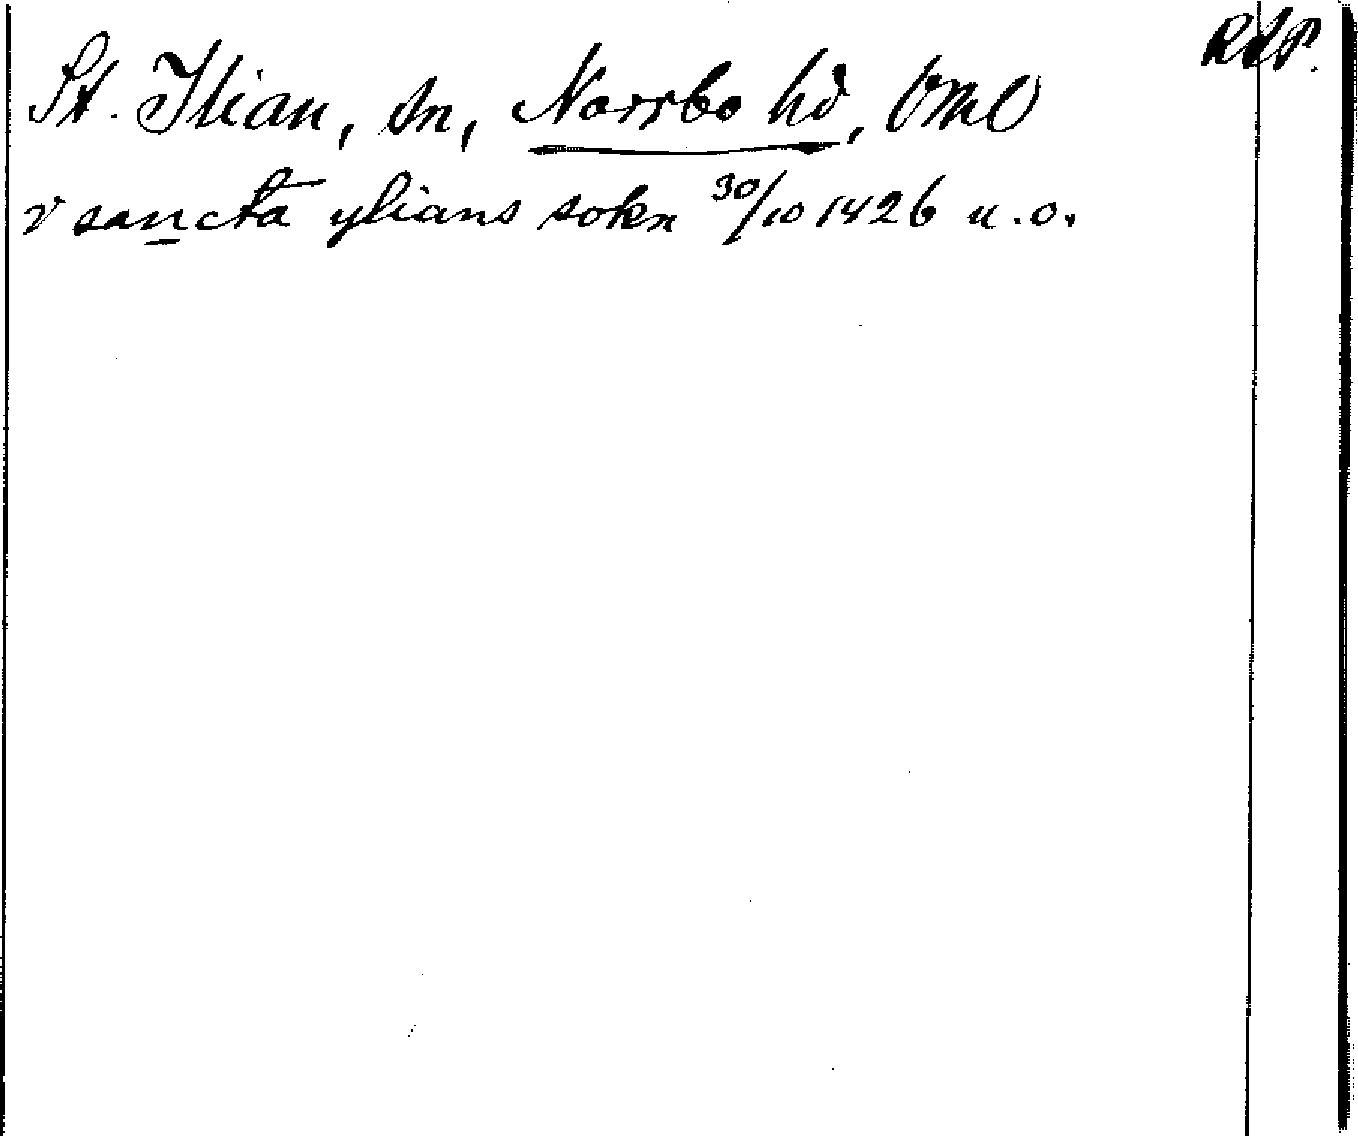 RAP.
St. Ilian, sn, Norrbo hd, Vml
v sancta ylians sokn 30/10 1426 u.o.